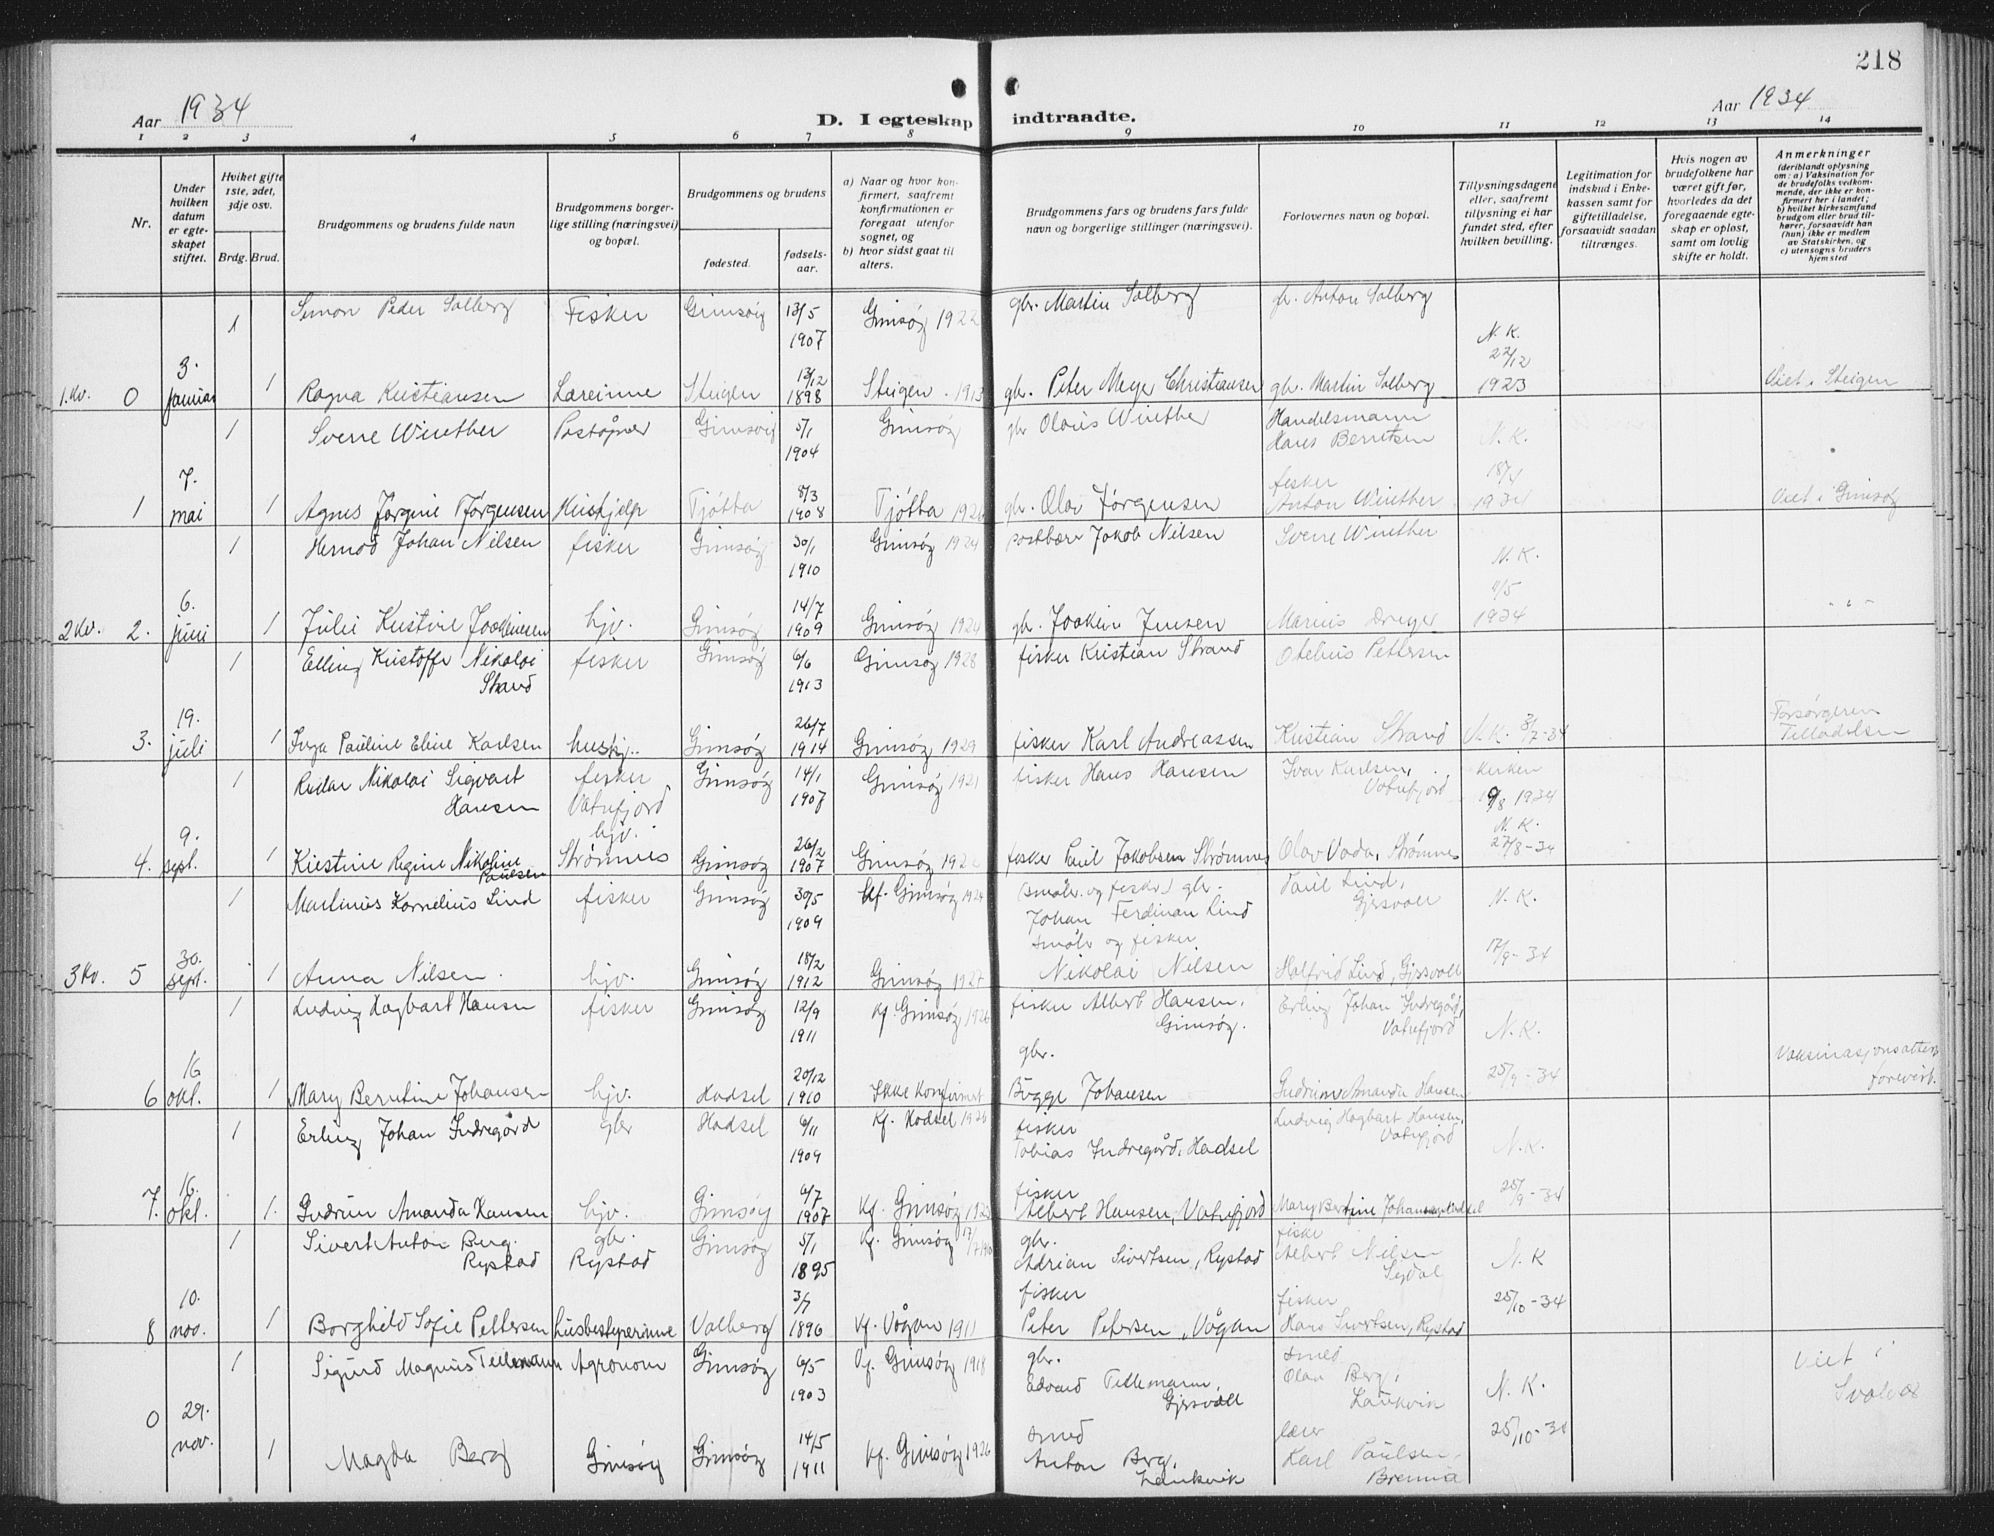 218
Aar 1934
D. I egteskap indtraadte.
Aar 1934
1 2 3 4 5 6 7 8 9 10 11 12 13 14
Nr.
Under hvilken datum er egteskapet stiftet.
Hviket gifte 1ste, 2det, 3dje osv.
Brdg. Brud.
Brudgommens og brudens fulde navn
Brudgommens borgerlige stilling (næringsvei) og bopæl.
Brudgommens og brudens
fødested.
fødselsaar.
a) Naar og hvor konfirmert, saafremt konfirmationen er foregaat utenfor sognet, og
b) hvor sidst gaat til alters.
Brudgommens fars og brudens fars fulde navn og borgerlige stillinger (næringsvei).
Forlovernes navn og bopæl.
Tillysningsdagene eller, saafremt tillysning ei har fundet sted, efter hvilken bevilling.
Legitimation for indskud i Enkekassen samt for giftetilladelse, forsaavidt saadan tiltrænges.
Hvis nogen av brudefolkene har været gift før, hvorledes da det foregaaende egteskap er opløst, samt om lovlig skifte er holdt.
Anmerkninger
(deriblandt oplysning om: a) Vaksination for de brudefolks vedkommende, der ikke er konfirmert her i landet; b) hvilket kirkesamfund brudgom eller brud tilhører, forsaavidt han (hun) ikke er medlem av Statskirken, og c) utensogns bruders hjemsted
1 Simon Peder Solberg Fisker Gimsøy 13/5 1907 Gimsøy 1922 gbr. Martin Solberg gb. Anton Solberg
1.Kv. 0 3. januar 1 Ragna Kristiansen Lærerinne Steigen 13/12 1898 Steigen 1913 gbr. Peter Meyer Christiansen gbr. Martin Solberg N.K. 22/12 1923 Viet i Steigen
1 Sverre Winther Poståpner Gimsøy 5/1 1904 Gimsøy gbr Olaus Winther Handelsmann Hans Berntsen
1 7. mai 1 Agnes Jørgine Jørgensen Hushjelp Tjøtta 8/3 1908 Tjøtta gbr. Olav Jørgensen fisker Anton Winther N.K. 18/4 1934 Viet i Gimsøy
1 Hernod Johan Nilsen fisker Gimsøy 30/1 1910 Gimsøy 1924 postbærer Jakob Nilsen Sverre Winther
2 Kv. 2. 6. juni 1 Julie Kristine Joakimsen hjv. Gimsøy 14/7 1909 Gimsøy 1924 gbr. Joakim Jensen Marius Dreyer N.K. /5 1934 - " -
1 Elling Kristoffer Nikolai Strand fisker Gimsøy 6/6 1913 Gimsøy 1928 fisker Kristian Strand Otelius Pettersen
3. 19. juli 1 Inga Pauline Eline Karlsen hushj. Gimsøy 26/7 1914 Gimsøy 1929 fisker Karl Andreassen Kristian Strand N.K. 3/7-34 Forsørgeren Tilladelse
1 Reidar Nikolai Sigvart Hansen fisker Vatnfjord Gimsøy 14/1 1907 Gimsøy 1921 fisker Hans Hansen Ivar Karlsen, Vatnfjord kirken 19/8 1934
4. 9. sept. 1 Kristine Regine Nikoline Paulsen hjv. Strømnes Gimsøy 26/2 1907 Gimsøy fisker Paul Jakobsen Strømnes Olav Voda, Strømnes N.K. 27/8-34
1 Martinus Kornelius Lind fisker Gimsøy 30/5 1909 Kf. Gimsøy 1924 småbr. og fisker Johan Ferdinan Lind Paul Lind, Gjersvoll N.K.
3 Kv. 5 30. sept. 1 Anna Nilsen hjv. Gimsøy 18/2 1912 Gimsøy 1927 småbr og fisker Nikolai Nilsen Halfrid Lind, Gjersvoll 17/9-34
1 Ludvig Hagbart Hansen fisker Gimsøy 12/9 1911 Kf. Gimsøy 1926 fisker Albert Hansen, Gimsøy. Erling Johan Indregård, Vatnfjord N.K.
6 16 okt. 1 Mary Berntine Johansen hjv. Hadsel 20/12 1910 Ikke konfirmert gbr. Bugge Johansen Gudrun Amanda Hansen 25/9-34 Vaksinasjonsattest forevist.
1 Erling Johan Indregård gbr Hadsel 6/11 1909 Kf. Hadsel fisker Tobias Indregård, Hadsel Ludvig Hagbart Hansen, Vatnfjord N.K.
7. 16. okt. 1. Gudrun Amanda Hansen hjv. Gimsøy 6/7 1907 Kf. Gimsøy fisker Albert Hansen, Vatnfjord Mary Berntine Johansen Hadsel 25/9-34
1 Sivert Anton Berg Rystad gbr. Rystad Gimsøy 5/1 1895 Kf. Gimsøy gbr. Adrian Sivertsen, Rystad fisker Albert Nilsen N.K
8 10. nov. 1 Borghild Sofie Pettersen husbestyrerinne Valberg 3/7 1896 Kf. Vågan 1911 fisker Peter Petersen, Vågan fisker Hans Sivertsen, Rystad 25/10-34
1 Sigurd Magnus Tellemann Agronom Gimsøy 6/5 1903 Kf. Gimsøy 1918 gbr. Edvard Tellemann, Gjersvoll smed Olav Berg, Laukvik N.K. Viet i Svolvær
0 29. nov. 1 Magda Berg Gimsøy Gimsøy 14/5 1911 Kf. Gimsøy 1926 smed Anton Berg, Laukvik lærer Karl Paulsen, Brenna 25/10-34